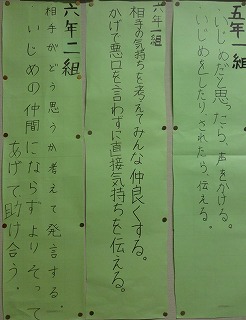 五年一組
いじめだと思ったら、声をかける。
いじめをしたり、されたら、伝える。
六年一組
相手の気持ちを考えてみんな仲良くする。
かげで悪口を言わずに直接気持ちを伝える。
六年二組
相手がどう思うか考えて発言する。
いじめの仲間にならずよりそって
あげて助け合う。